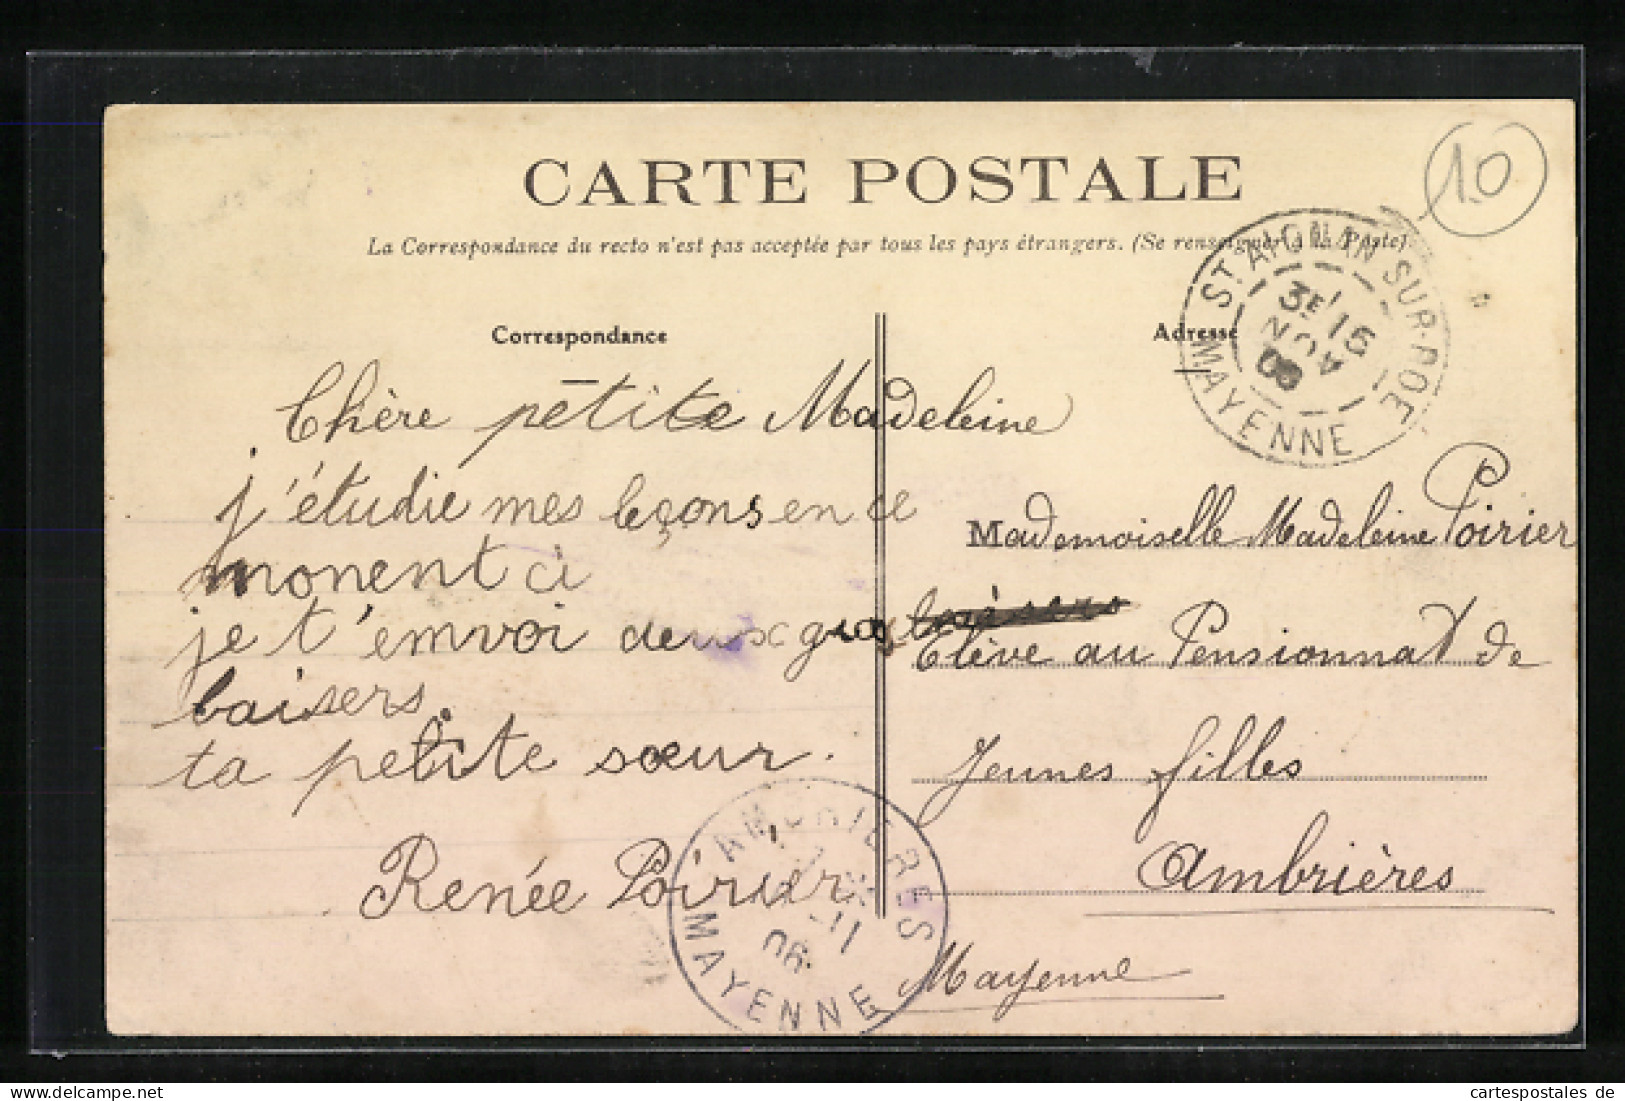 CARTE POSTALE
10
La Correspondance du recto n'est pas acceptée par tous les pays étrangers. (Se renseigner à la Poste).
Correspondance
Chère petite Madeleine
j'étudie mes leçons en ce
monent ci
je t'emvoi deux gros baisers
baisers.
ta petite sœur.
Renée Poirier
Adresse
Mademoiselle Madeleine Poirier
Elève au Pensionnat de
Jeunes filles
Ambrières
Mayenne
ST AIGNAN-SUR-ROE
3E 15
NOV
06
MAYENNE
AMBRIERES
-11
06
MAYENNE
cartespostales de